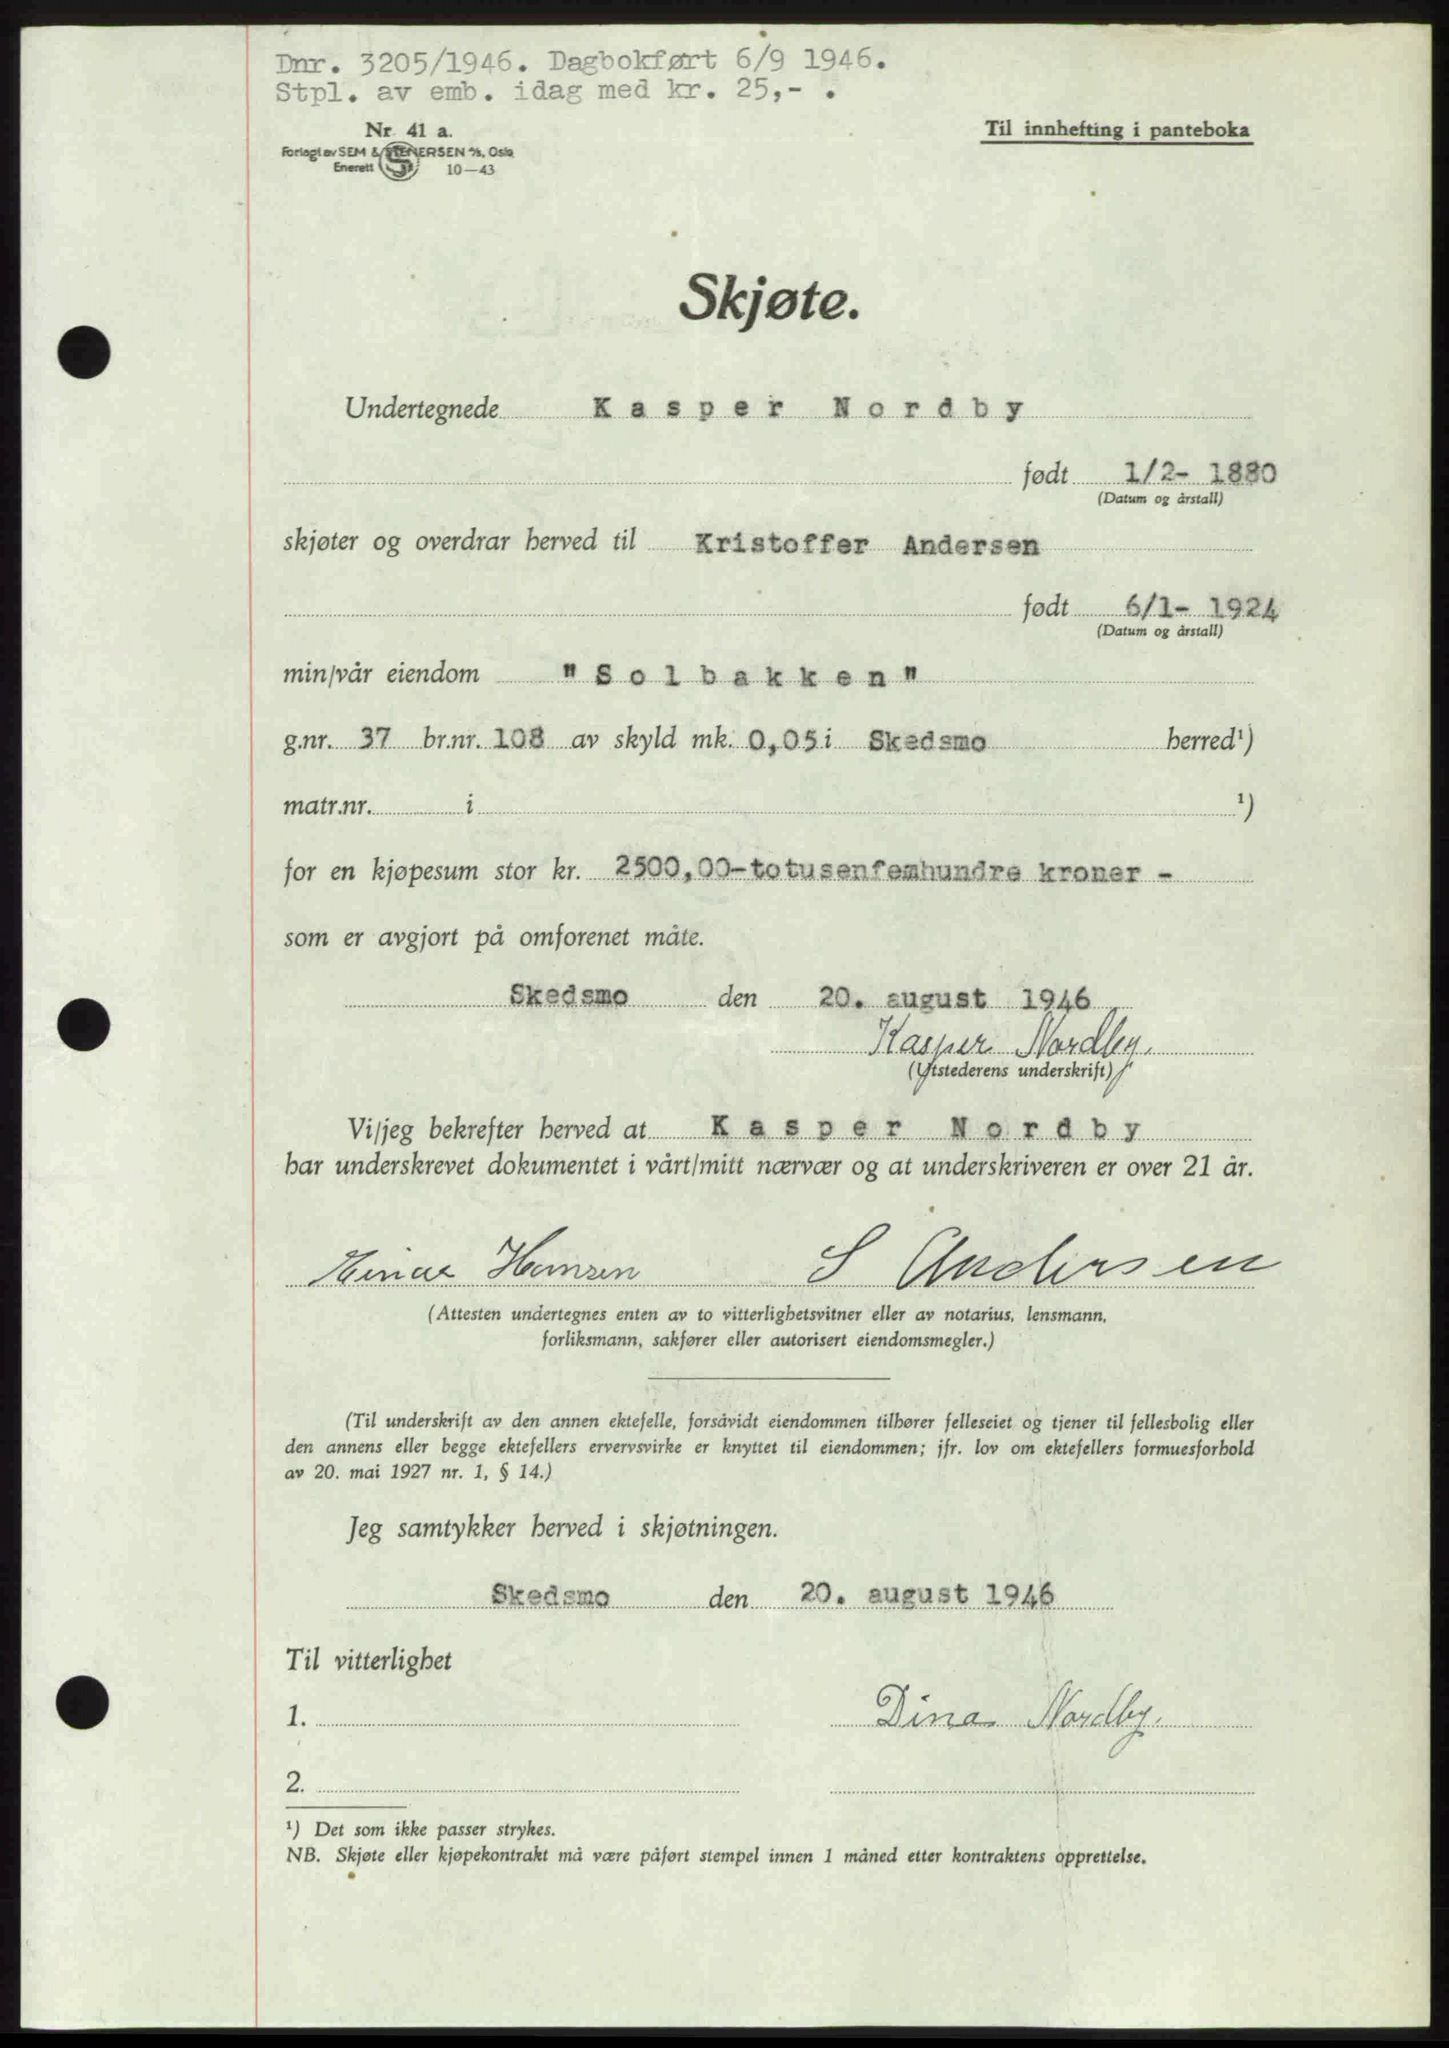 Dnr. 3205/1946. Dagbokført 6/9 1946.
Stpl. av emb. idag med kr. 25,- .
Nr. 41 a.
Til innhefting i panteboka
Forlagt av SEM & STENERSEN A/S, Oslo
Enerett 10—43
Skjøte.
Undertegnede Kasper Nordby
født 1/2- 1880
(Datum og årstall)
skjøter og overdrar herved til Kristoffer Andersen
født 6/1- 1924
(Datum og årstall)
min/vår eiendom "Solbakken"
g.nr. 37 br.nr. 108 av skyld mk. 0,05 i Skedsmo herred¹)
matr.nr. i ¹)
for en kjøpesum stor kr. 2500,00-totusenfemhundre kroner -
som er avgjort på omforenet måte.
Skedsmo den 20. august 1946
Kasper Nordby.
(Utstederens underskrift)
Vi/jeg bekrefter herved at Kasper Nordby
har underskrevet dokumentet i vårt/mitt nærvær og at underskriveren er over 21 år.
Einar Hansen S Andersen
(Attesten undertegnes enten av to vitterlighetsvitner eller av notarius, lensmann,
forliksmann, sakfører eller autorisert eiendomsmegler.)
(Til underskrift av den annen ektefelle, forsåvidt eiendommen tilhører felleseiet og tjener til fellesbolig eller
den annens eller begge ektefellers ervervsvirke er knyttet til eiendommen; jfr. lov om ektefellers formuesforhold
av 20. mai 1927 nr. 1, § 14.)
Jeg samtykker herved i skjøtningen.
Skedsmo den 20. august 1946
Til vitterlighet
1. Dina Nordby.
2.
¹) Det som ikke passer strykes.
NB. Skjøte eller kjøpekontrakt må være påført stempel innen 1 måned etter kontraktens opprettelse.